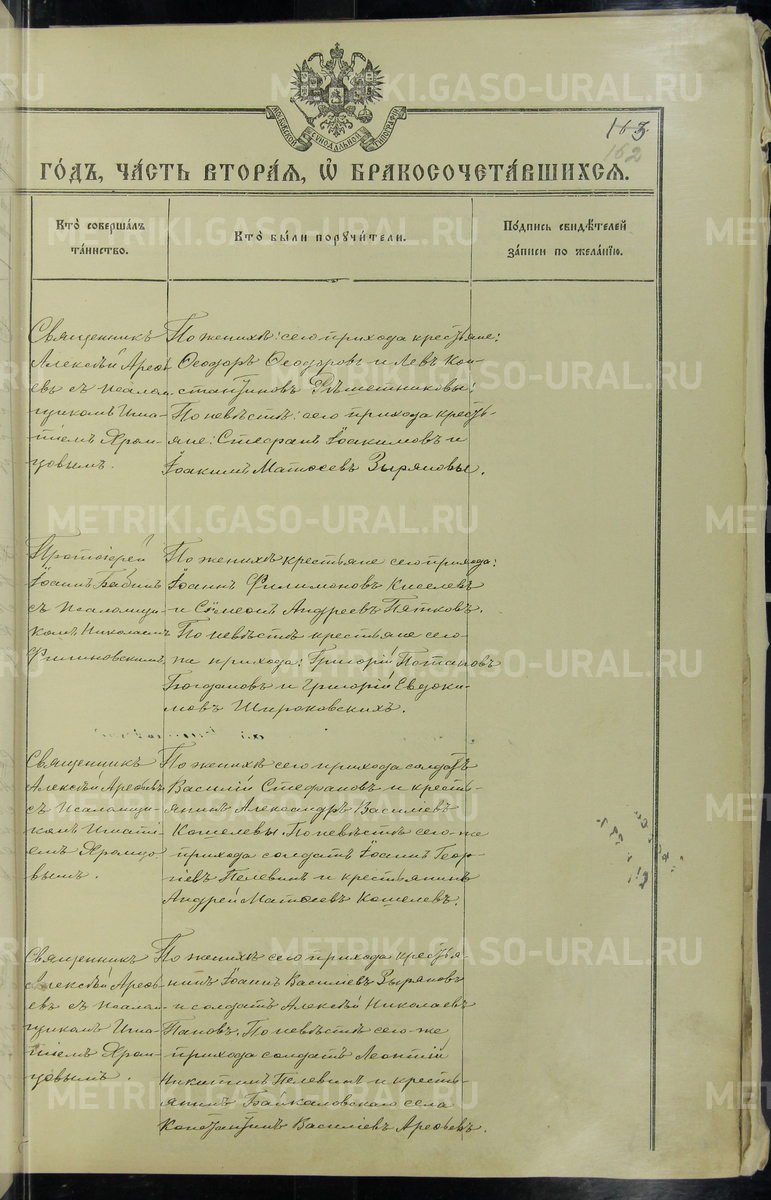 МОСКОВСКОЙ СѴНОДАЛЬНОЙ ТИПОГРАФІИ
163
162
ГО́ДЪ, ЧА́СТЬ ВТОРА́Я, Ѡ҆ БРАКОСОЧЕТА́ВШИХСЯ.
Кто̀ соверша́лъ
та́инство.
Кто̀ бы́ли поручи́тели.
По́дпись свидѣ́телей
за́писи по жела́нїю.
Священникъ
Алексѣй Арефь-
евъ съ псалом-
щикомъ Игна-
тіемъ Храм-
цовымъ.
По женихѣ: сего прихода крестьяне:
Ѳеодоръ Ѳеодоровъ и Левъ Кон-
стантиновъ Рѣшетниковы;
По невѣстѣ: сего прихода кресть-
яне: Стефанъ Іоакимовъ и
Іоакимъ Матѳеевъ Зыряновы.
Протоіерей
Іоаннъ Бабинъ
съ псаломщи-
комъ Николаемъ
Филиновскимъ
По женихѣ крестьяне сего прихода:
Іоаннъ Филимоновъ Киселевъ
и Сѵмеонъ Андреевъ Пятковъ.
По невѣстѣ крестьяне сего
же прихода: Григорій Потаповъ
Богдановъ и Григорій Евдоки-
мовъ Широковскихъ.
Священникъ
Алексѣй Арефьевъ
съ псаломщи-
комъ Игнаті-
емъ Храмцо-
вымъ.
По женихѣ сего прихода солдатъ
Василій Стефановъ и кресть-
янинъ Александръ Василіевъ
Кошелевы. По невѣстѣ сего же
прихода солдатъ Іоаннъ Геор-
гіевъ Пелевинъ и крестьянинъ
Андрей Матѳеевъ Кошелевъ.
Священникъ
Алексѣй Арефь-
евъ съ псалом-
щикомъ Игна-
тіемъ Храм-
цовымъ.
По женихѣ сего прихода крестья-
нинъ Іоаннъ Василіевъ Зыряновъ
и солдатъ Алексѣй Николаевъ
Пановъ. По невѣстѣ сего же
прихода солдатъ Леонтій
Никитинъ Пелевинъ и кресть-
янинъ Байкаловскаго села
Константинъ Василіевъ Арефьевъ.
METRIKI.GASO-URAL.RU